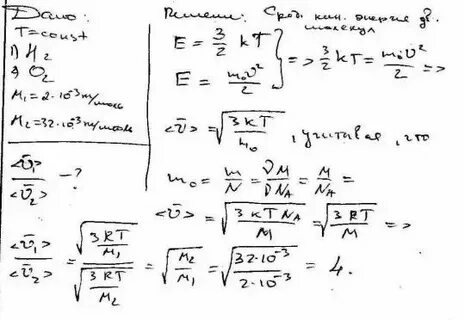 Дано:
T = const
1) H₂
2) O₂
M₁ = 2·10⁻³ кг/моль
M₂ = 32·10⁻³ кг/моль
<v̄₁>/<v̄₂> - ?
Решение: Сред. кин. энергия дв. молекул
E = 3/2 kT
E = m₀v²/2
=> 3/2 kT = m₀v²/2 =>
<v̄> = √(3kT/m₀), учитывая, что
m₀ = m/N = νM/νN_A = M/N_A =
<v̄> = √(3kTN_A/M) = √(3RT/M) =>
<v̄₁>/<v̄₂> = √(3RT/M₁)/√(3RT/M₂) = √(M₂/M₁) = √(32·10⁻³/2·10⁻³) = 4.